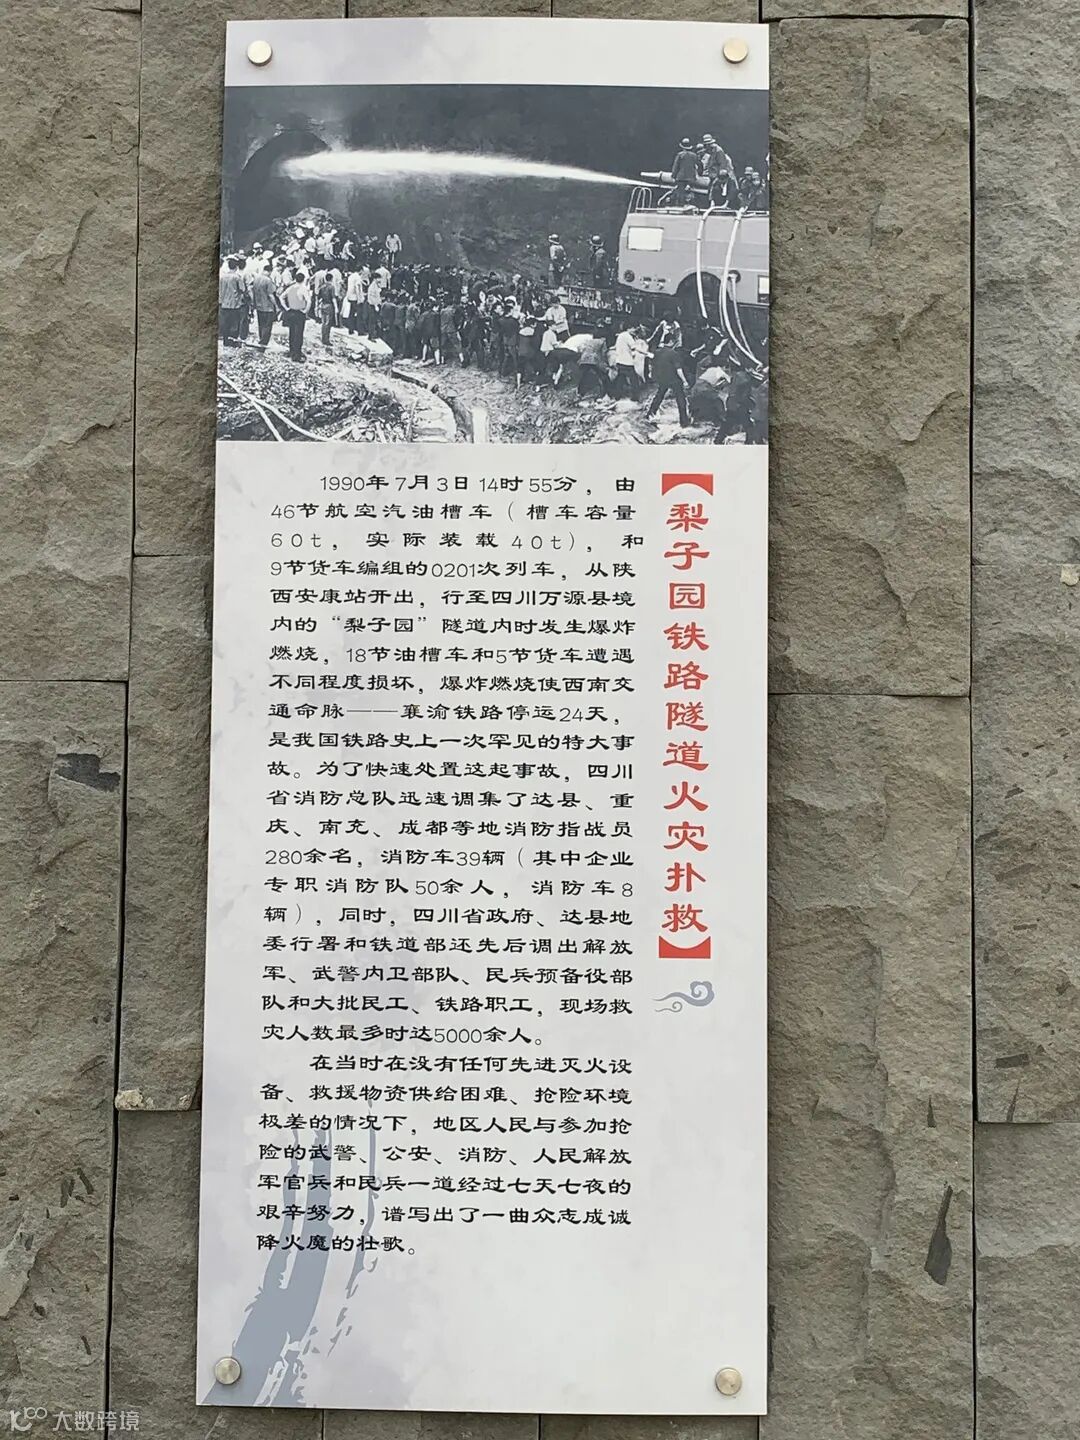 【梨子园铁路隧道火灾扑救】
1990年7月3日14时55分，由
46节航空汽油槽车（槽车容量
60t，实际装载40t），和
9节货车编组的0201次列车，从陕
西安康站开出，行至四川万源县境
内的“梨子园”隧道内时发生爆炸
燃烧，18节油槽车和5节货车遭遇
不同程度损坏，爆炸燃烧使西南交
通命脉——襄渝铁路停运24天，
是我国铁路史上一次罕见的特大事
故。为了快速处置这起事故，四川
省消防总队迅速调集了达县、重
庆、南充、成都等地消防指战员
280余名，消防车39辆（其中企业
专职消防队50余人，消防车8
辆），同时，四川省政府、达县地
委行署和铁道部还先后调出解放
军、武警内卫部队、民兵预备役部
队和大批民工、铁路职工，现场救
灾人数最多时达5000余人。
在当时在没有任何先进灭火设
备、救援物资供给困难、抢险环境
极差的情况下，地区人民与参加抢
险的武警、公安、消防、人民解放
军官兵和民兵一道经过七天七夜的
艰辛努力，谱写出了一曲众志成诚
降火魔的壮歌。
大数跨境